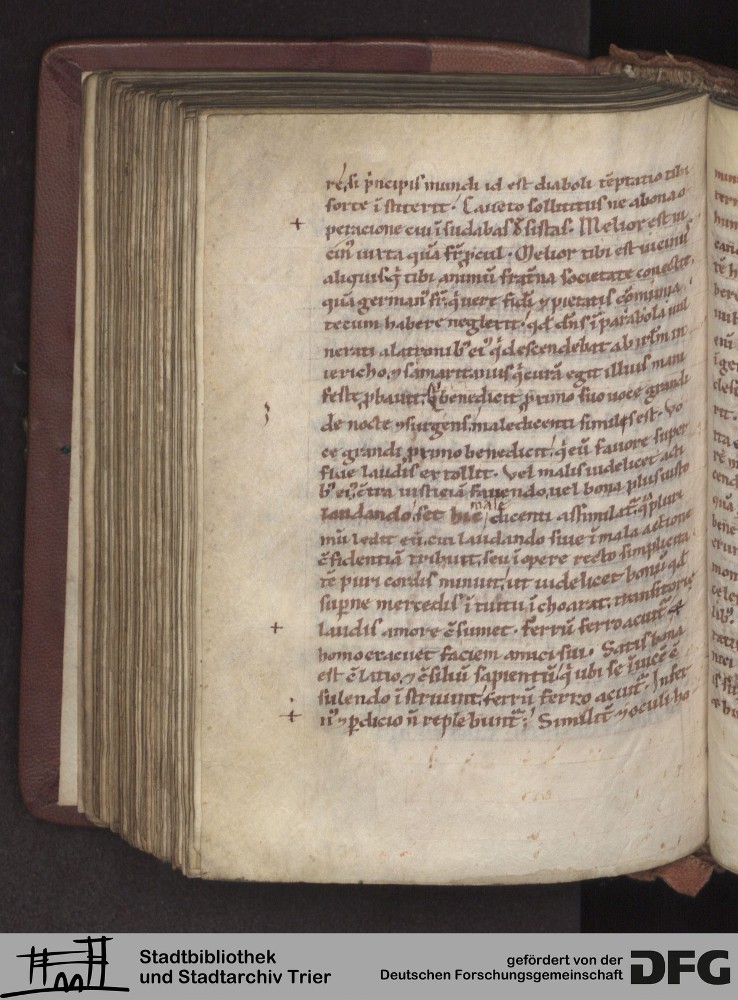 re, si p̄ncipis mundi id est diaboli tēptatio tibi
forte īstiterit. Caueto sollititus ne abona o
peracione cui īsudabas
Melior est ui
cin⁹ iuxta quā fr̄ p̄cul. Melior tibi est uicinus
aliquis q̄ tibi animū fr̄atna societate conectit
quā german⁹ fr̄ q̄ uere fidi ⁊ pietatis cōmunia
tecum habere neglexit. qd̄ dn̄s ī parabola uul
nerati alatronib; ei⁹ q̄ descendebat ab irl̄m in
iericho, ⁊ samaritanus q̄ curā egit illius mani
feste p̄bauit. Q̄ benedicit p̄ximo suo uoce grandi
de nocte ⁊surgens, maledicenti similis est. Vo
ce grandi primo benedicit, q̄ eū fauore super
fluae laudis extollit. Vel malis uidelicet acti
b; ei⁹ c̄tra iusticiā fauendo, uel bona plus iusto
laudando. set hic male dicenti assimilat̄.
mū ledit eū, cui laudando siue ī mala actione
c̄fidentiā tribuit, seu ī opere recto simplicita
tē puri cordis minuit, ut uidelicet bonū qd̄
sup̄ne mercedis ītuitu īchoarat, transitorię
laudis amore c̄sumet. Ferrū ferro acuit̄ ⁊
homo exacuet faciem amici sui. Satis bona
est c̄latio, ⁊ c̄siliū sapientū, q̄ ubi se īuicē c̄
sulendo īstruunt, ferrū ferro acuit̄. Infer
n⁹ ⁊ p̄dicio n̄ replebunt̄. Similit̄ ⁊ oculi ho
Stadtbibliothek
und Stadtarchiv Trier
gefördert von der
Deutschen Forschungsgemeinschaft
DFG